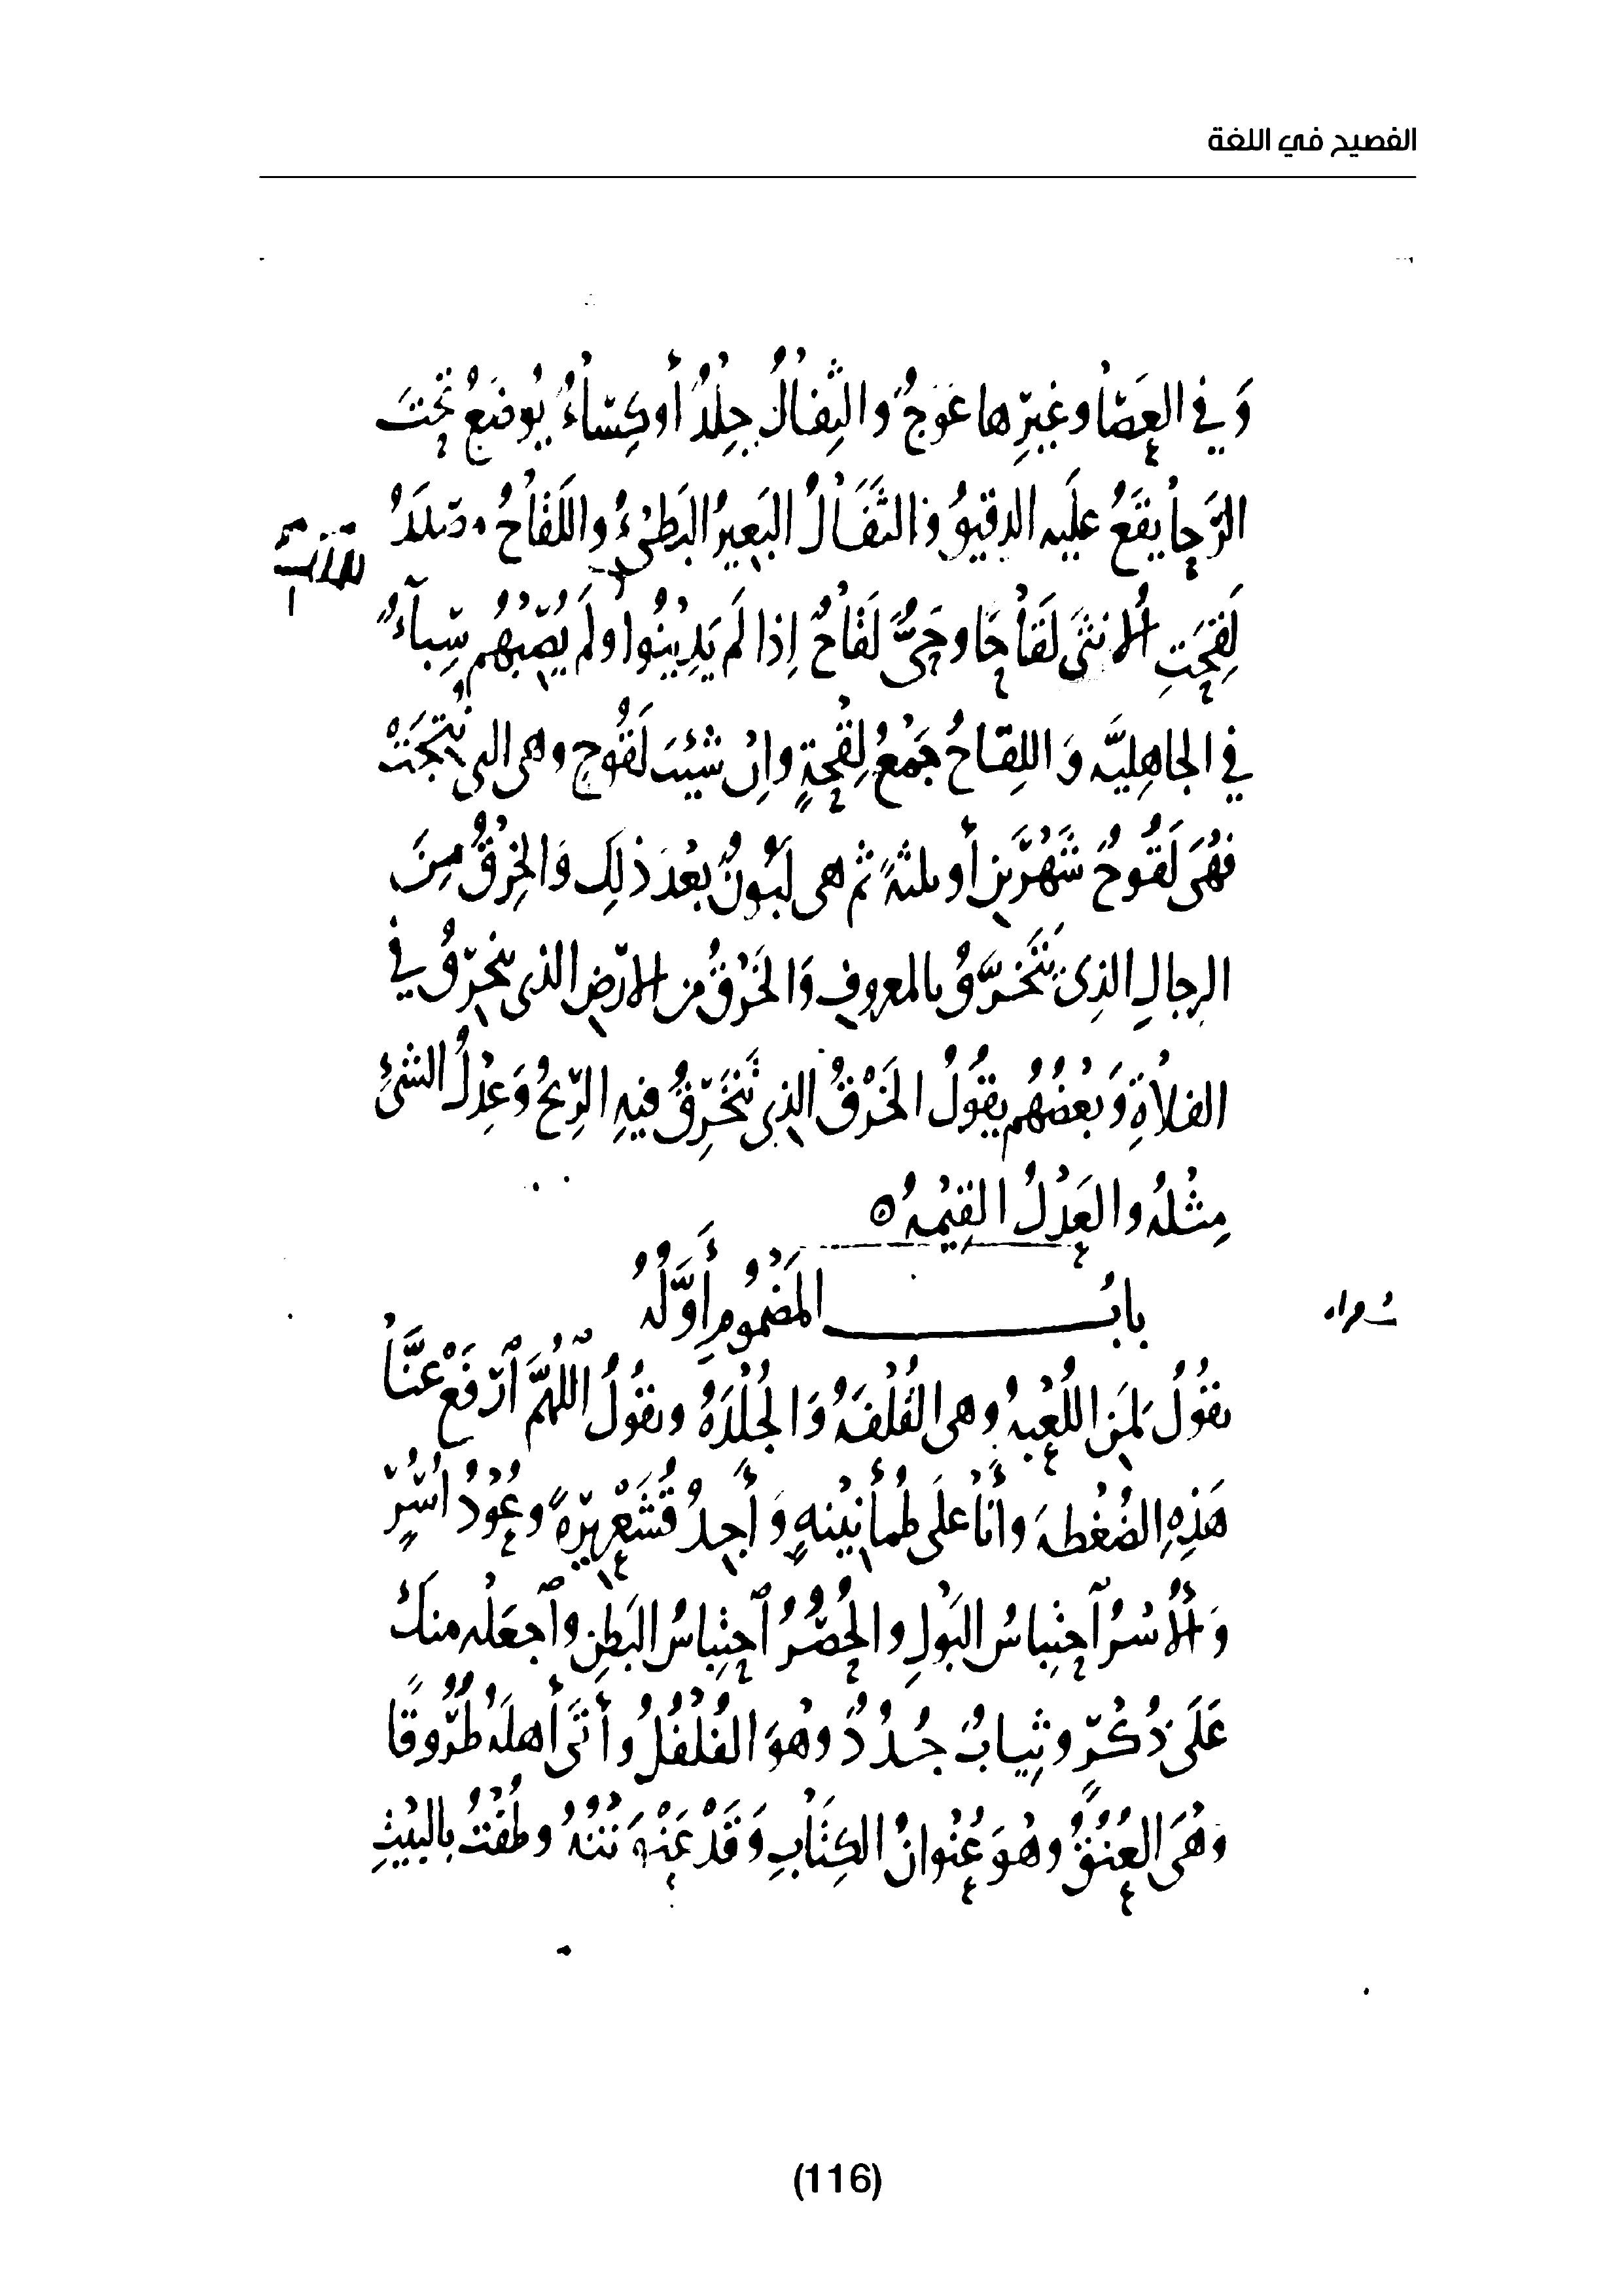 الفصيح في اللغة
وَفي العَصَا وغيرِها عَوَجٌ والثِّفالُ جِلْدٌ أو كِسَاءٌ يُوضَعُ تحتَ
الرَّحا يقَعُ عليه الدقيقُ والثَّفَالُ البَعِيرُ البَطِىءُ واللَّقاحُ مصدرُ
لَقِحَتِ الأنثى لَقَاحًا وحَىٌّ لَقَاحٌ إذا لَم يَدِيْنُوا ولَم يُصِبْهُم سِبَاءٌ
في الجاهِليَّه وَاللِقَاحُ جَمْعُ لِقْحَةٍ وإنْ شِئتَ لَقُوحٍ وهى التى نُتِجَتْ
فهْىَ لَقُوحٌ شَهْرَينِ أو ثلثةً ثم هى لَبُونٌ بَعْدَ ذلِكَ وَالخِرْقُ مِنَ
الرجالِ الذِى يَتَخَرَّقُ بالمعروفِ وَالخَرْقُ من الأرضِ الذى ينخرقُ في
الفلاةِ وَبعْضُهُم يقُولُ الخَرْقُ الذى تَنْخَرِقُ فيهِ الرِّيحُ وَعِدْلُ الشئِ
مِثْلُهُ والعَدْلُ القِيْمهُ ٥
بابُ المَضْمُومِ أَوَّلُهُ
تقُولُ لمَنِ اللُّعْبهُ وهى القُلْفَهُ وَالجُلْدَةُ وتقُولُ اللهُمَّ ٱرْفَعْ عنَّا
هَذِهِ الضُغْطهَ وأنا علَى طُمأنِيْنهٍ وَأَجِدُ قُشَعْرِيرَةً وعُوْدُ أُسُرٍ
وَالأُسْرُ ٱحتِباسُ البَوْلِ والحُصْرُ ٱحتِباسُ البَطنِ وٱجعَلْه منكَ
عَلَى ذُكْرٍ وثِيابٌ جُدُدٌ وهُوَ الفُلْفُلُ وأتَى أهلَهُ طُرُوقًا
وَهْىَ العُنُقُ وهُوَ عُنْوانُ الكِتَابِ وَقَدْ عَنْوَنْتُهُ وطُفْتُ بالبَيْتِ
(116)